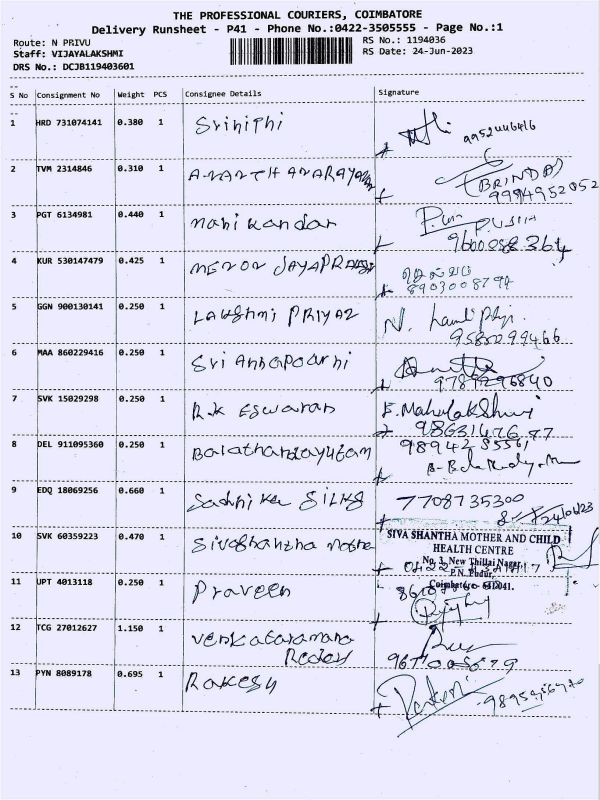 THE PROFESSIONAL COURIERS, COIMBATORE
Delivery Runsheet - P41 - Phone No.:0422-3505555 - Page No.:1
Route: N PRIVU
RS No.: 1194036
Staff: VIJAYALAKSHMI
RS Date: 24-Jun-2023
DRS No.: DCJB119403601
S No Consignment No Weight PCS Consignee Details Signature
1 HRD 731074141 0.380 1 Srinithi
9952446416
2 TVM 2314846 0.310 1 ANANTHANARAYANAN
BRINDA
9994952052
3 PGT 6134981 0.440 1 manikandan
9600888364
4 KUR 530147479 0.425 1 MENON JAYAPRAKASH
8903008794
5 GGN 900130141 0.250 1 LAKSHMI PRIYAA
9585099466
6 MAA 860229416 0.250 1 Sri Annapoorni
9789296840
7 SVK 15029298 0.250 1 R.K Eswaran
E. Mahalakshmi
8 DEL 911095360 0.250 1 Balathandayutam
9894285561
9 EDQ 18069256 0.660 1 Sadhika SILKS
7708735300
24/06/23
10 SVK 60359223 0.470 1 Sivashantha Mother
SIVA SHANTHA MOTHER AND CHILD
HEALTH CENTRE
No. 3, New Thillai Nagar,
P.N. Pudur,
Coimbatore - 641041.
11 UPT 4013118 0.250 1 Praveen
12 TCG 27012627 1.150 1 Venkataramana
Reddy
13 PYN 8089178 0.695 1 Rakesh